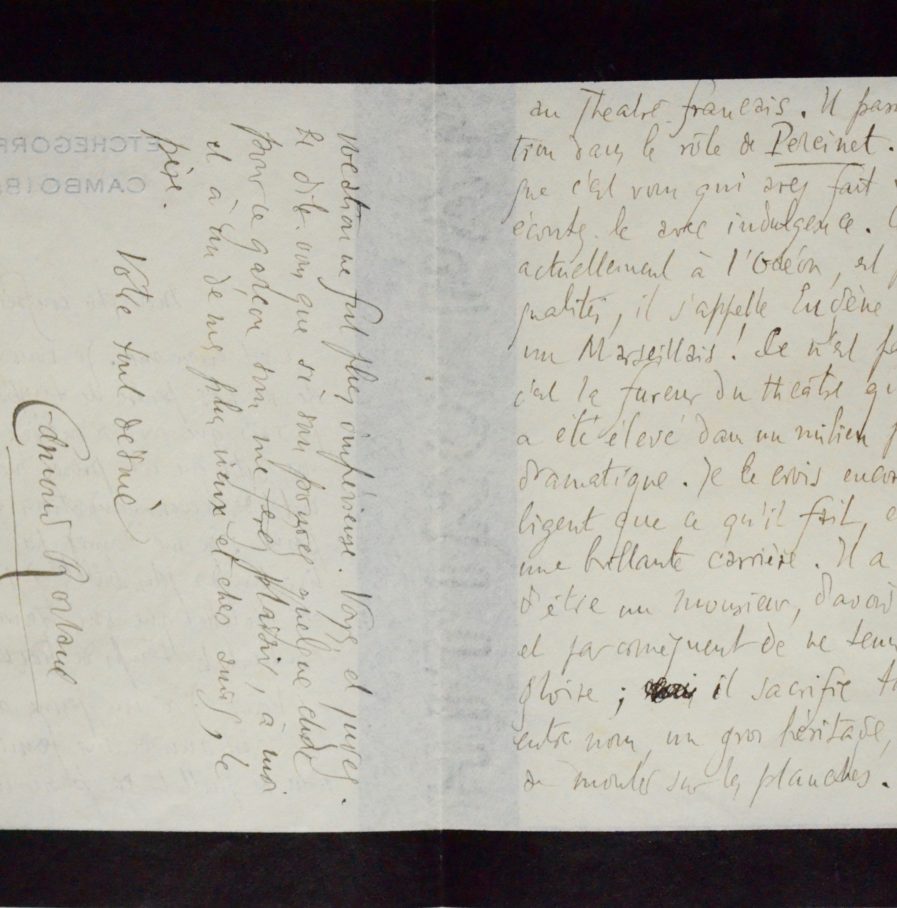 au Theatre français. Il
tion dans le rôle de Percinet.
que c'est vous qui avez fait
écoutez le avec indulgence.
actuellement à l'Odéon, est
qualités, il s'appelle Eugène
un Marseillais! Ce n'est
c'est la fureur du théâtre
a été élevé dans un milieu
dramatique. Je le crois
ligent que ce qu'il fait,
une brillante carrière. Il a
d'être un monsieur, d'avoir
et par conséquent de ne
gloire; il sacrifie
entre nous, un gros héritage,
de monter sur les planches.
vocation ne fut plus impérieuse. Voyez, et jugez.
Et dites-vous que si vous pouvez quelque chose
pour ce garçon vous me ferez plaisir, à moi
et à un de mes plus vieux et chers amis, le
père.
Votre tout dévoué
Edmond Rostand
ETCHEGORR
CAMBO (B